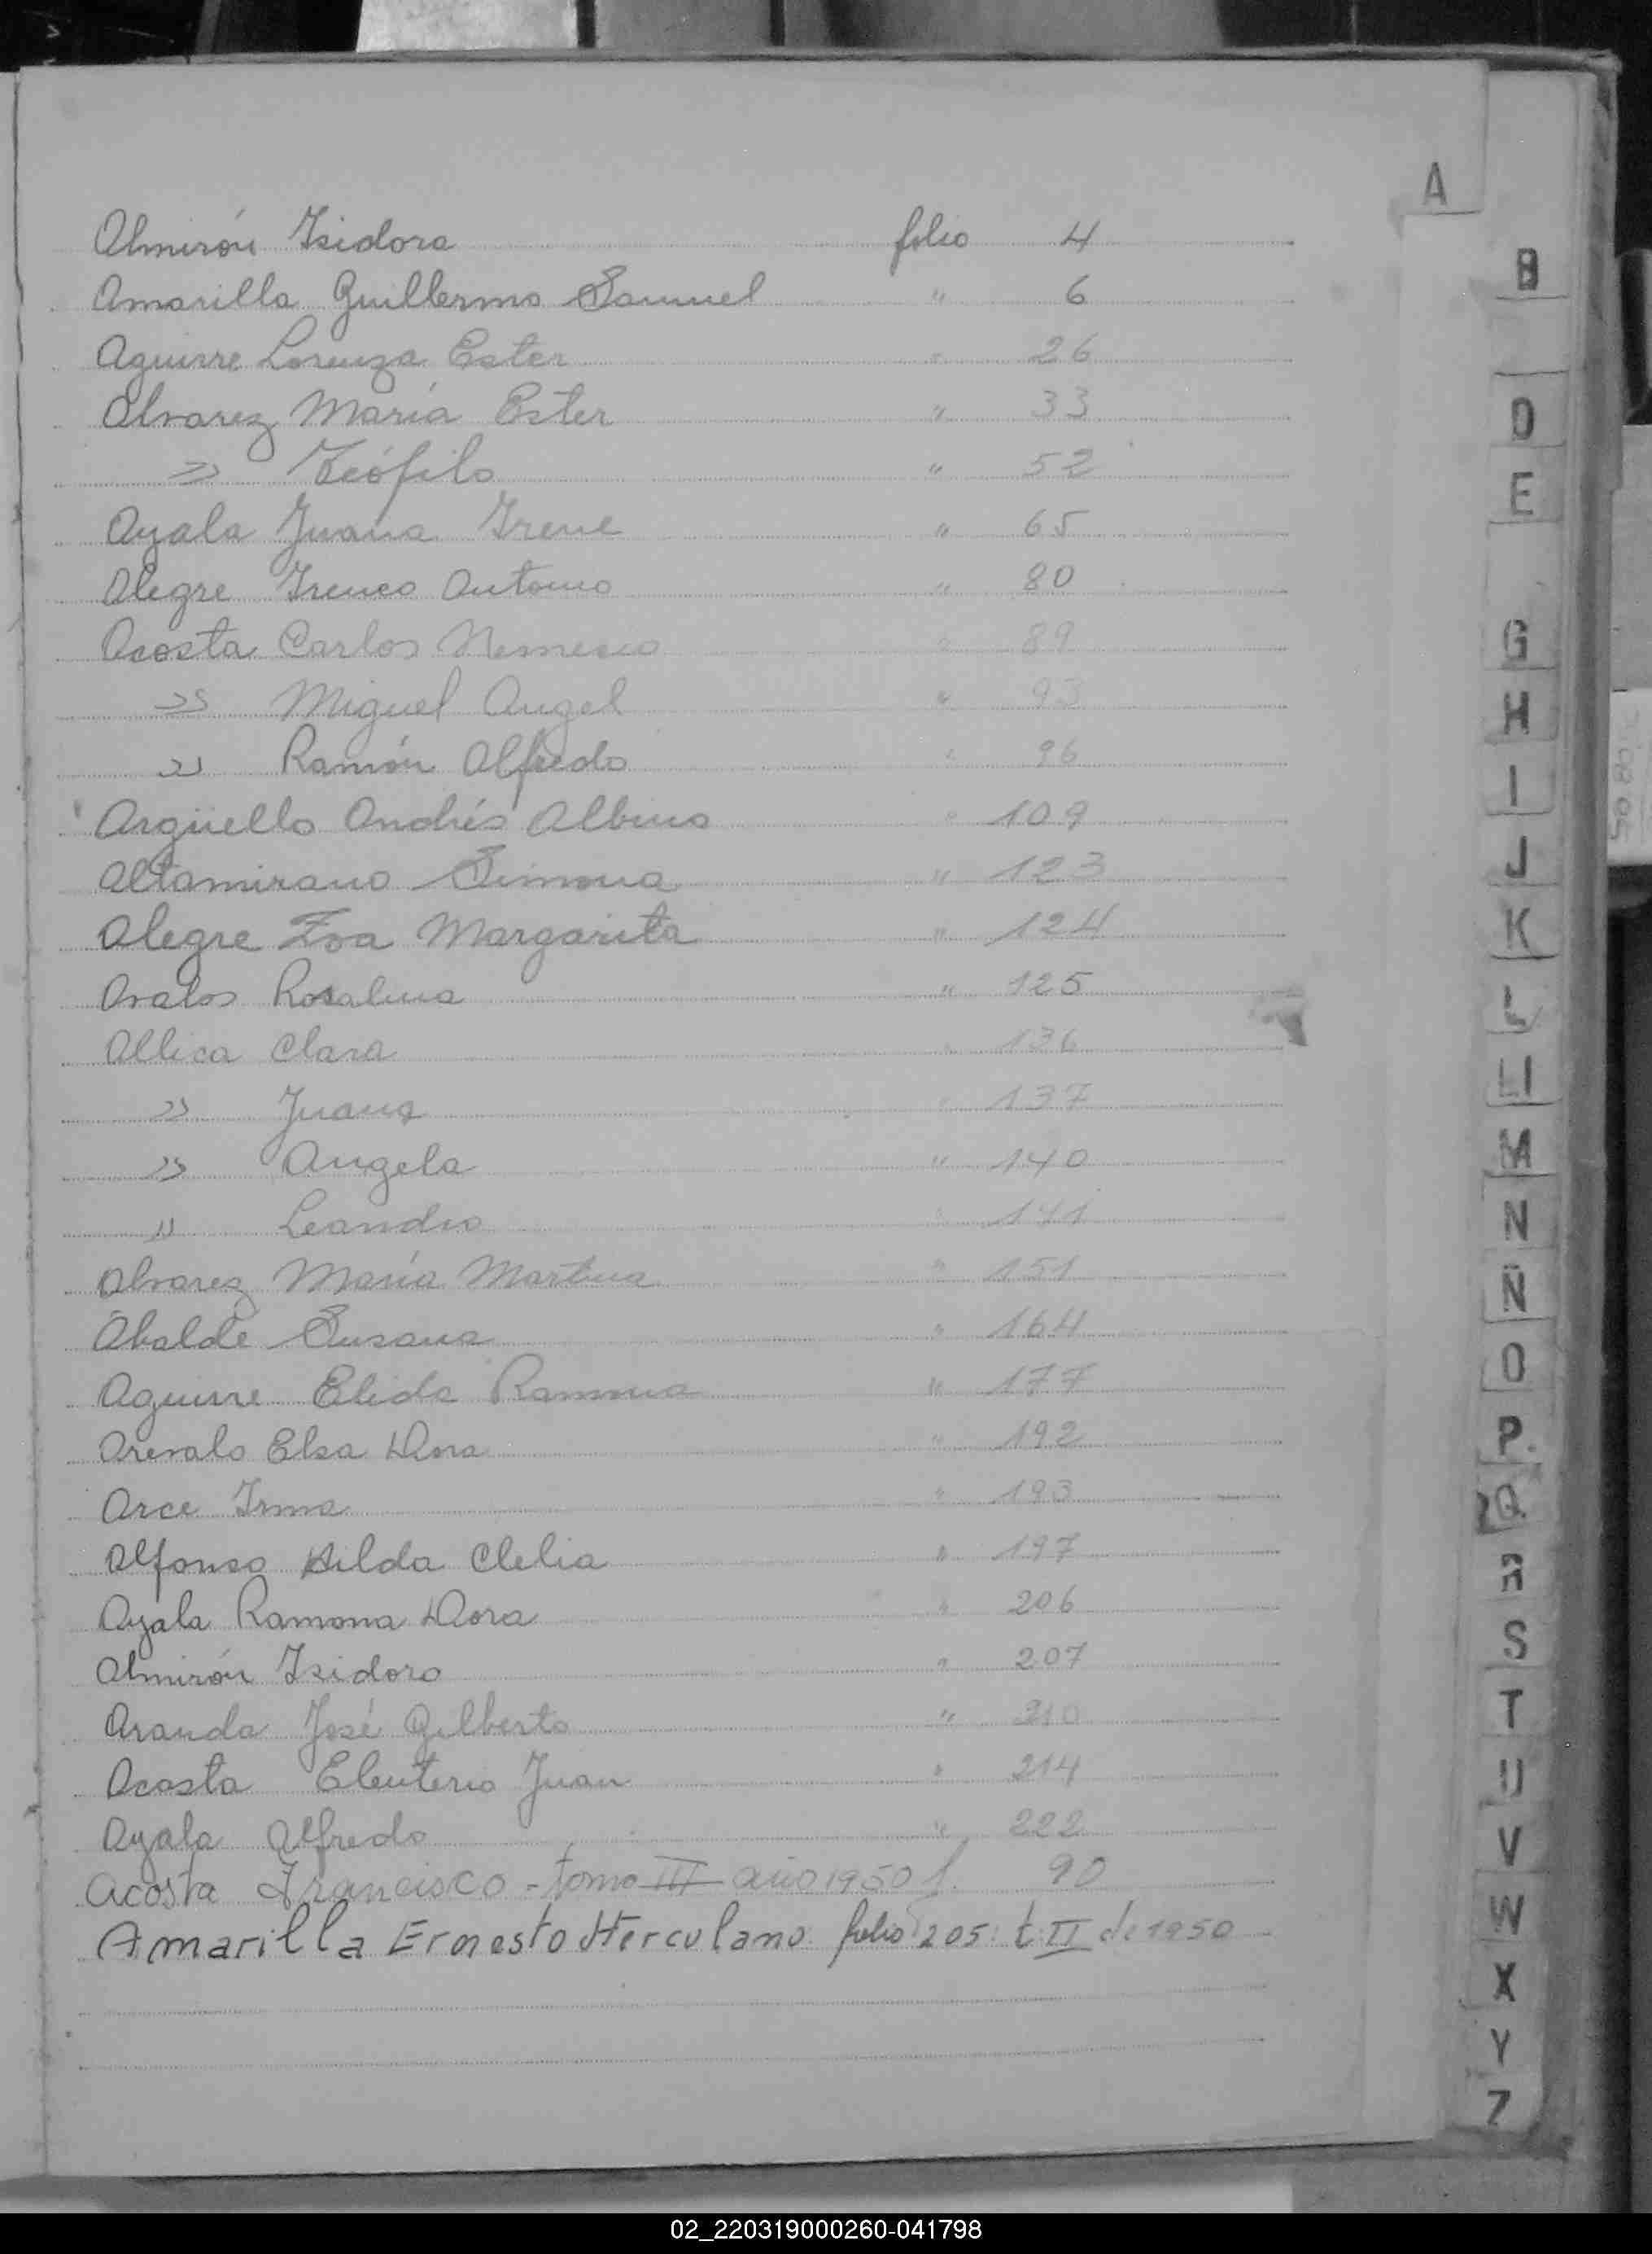 A
Almirón Isidora folio 4
Amarilla Guillermo Samuel " 6
Aguirre Lorenza Ester " 26
Alvarez María Ester " 33
" Teófilo " 52
Ayala Juana Irene " 65
Alegre Ireneo Antonio " 80
Acosta Carlos Nemesio " 89
" Miguel Angel " 93
" Ramón Alfredo " 96
Argüello Andrés Albino " 109
Altamirano Simona " 123
Alegre Zoa Margarita " 124
Avalos Rosalina " 125
Allica Clara " 136
" Juana " 137
" Angela " 140
" Leandro " 141
Alvarez María Martina " 151
Abalde Susana " 164
Aguirre Elida Ramona " 177
Arevalo Elsa Dora " 192
Arce Irma " 193
Alfonso Hilda Clelia " 197
Ayala Ramona Dora " 206
Almirón Isidoro " 207
Aranda José Gilberto " 210
Acosta Eleuterio Juan " 214
Ayala Alfredo " 222
Acosta Francisco - tomo III año 1950 f. 90
Amarilla Ernesto Herculano folio 205 t. II de 1950
B
D
E
G
H
I
J
K
L
Ll
M
N
Ñ
O
P
Q
R
S
T
U
V
W
X
Y
Z
02_220319000260-041798